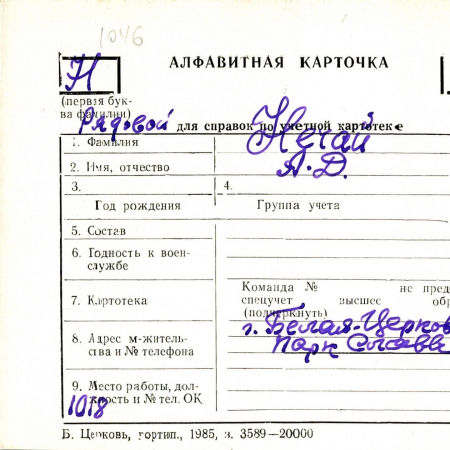 1046
Н
АЛФАВИТНАЯ КАРТОЧКА
(первая бук-
ва фамилии)
Рядовой для справок по учетной картотеке
1. Фамилия Нечай
2. Имя, отчество А.Д.
3. 4.
Год рождения Группа учета
5. Состав
6. Годность к воен-
службе
Команда № не пред
7. Картотека спецучет высшее об
(подчеркнуть)
г. Белая-Церков
8. Адрес м-житель-
ства и № телефона Парк
9. Место работы, дол-
жность и № тел. ОК
1018
Б. Церковь, гортип., 1985, з. 3589—20000